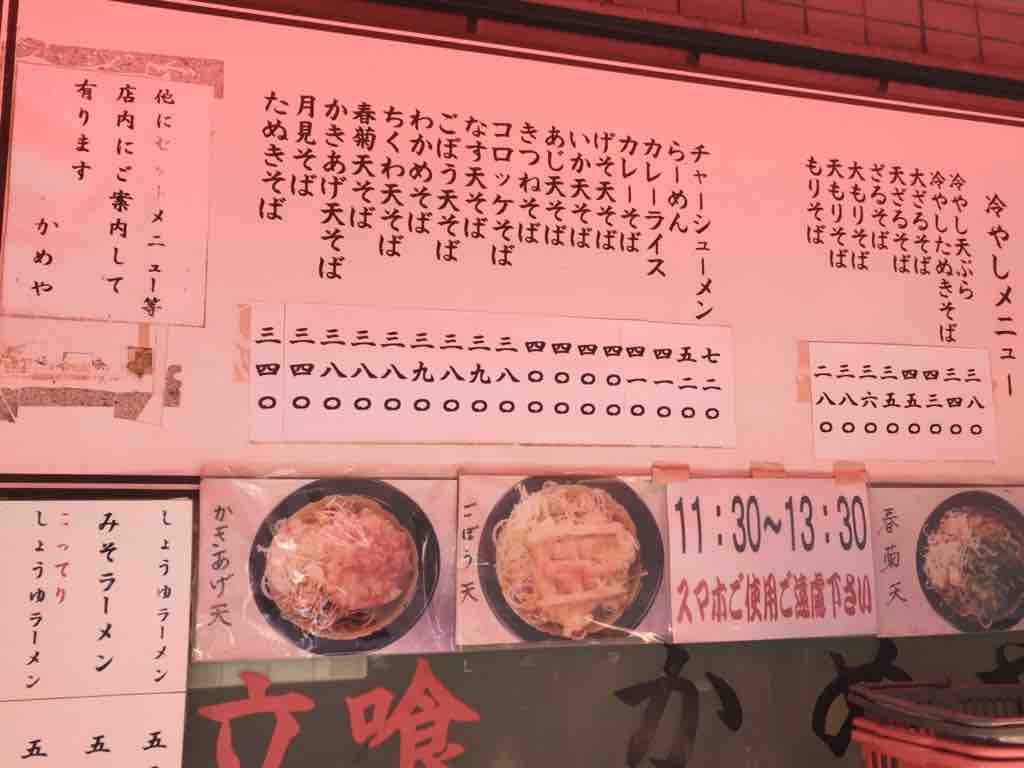 冷やしメニュー
冷やし天ぷら
冷やしたぬきそば
大ざるそば
天ざるそば
ざるそば
大もりそば
天もりそば
もりそば
三八〇
三四〇
四三〇
四五〇
三五〇
三六〇
三八〇
二八〇
チャーシューメン
らーめん
カレーライス
カレーそば
げそ天そば
いか天そば
あじ天そば
きつねそば
コロッケそば
なす天そば
ごぼう天そば
わかめそば
ちくわ天そば
春菊天そば
かきあげ天そば
月見そば
たぬきそば
七二〇
五二〇
四一〇
四一〇
四〇〇
四〇〇
四〇〇
四〇〇
三八〇
三九〇
三八〇
三九〇
三八〇
三八〇
三八〇
三四〇
三四〇
他にセットメニュー等
店内にご案内して
有ります
かめや
しょうゆラーメン
みそラーメン
こってり
しょうゆラーメン
五
五
五
かきあげ天
ごぼう天
11:30~13:30
スマホご使用ご遠慮下さい
春菊天
立喰
かめ